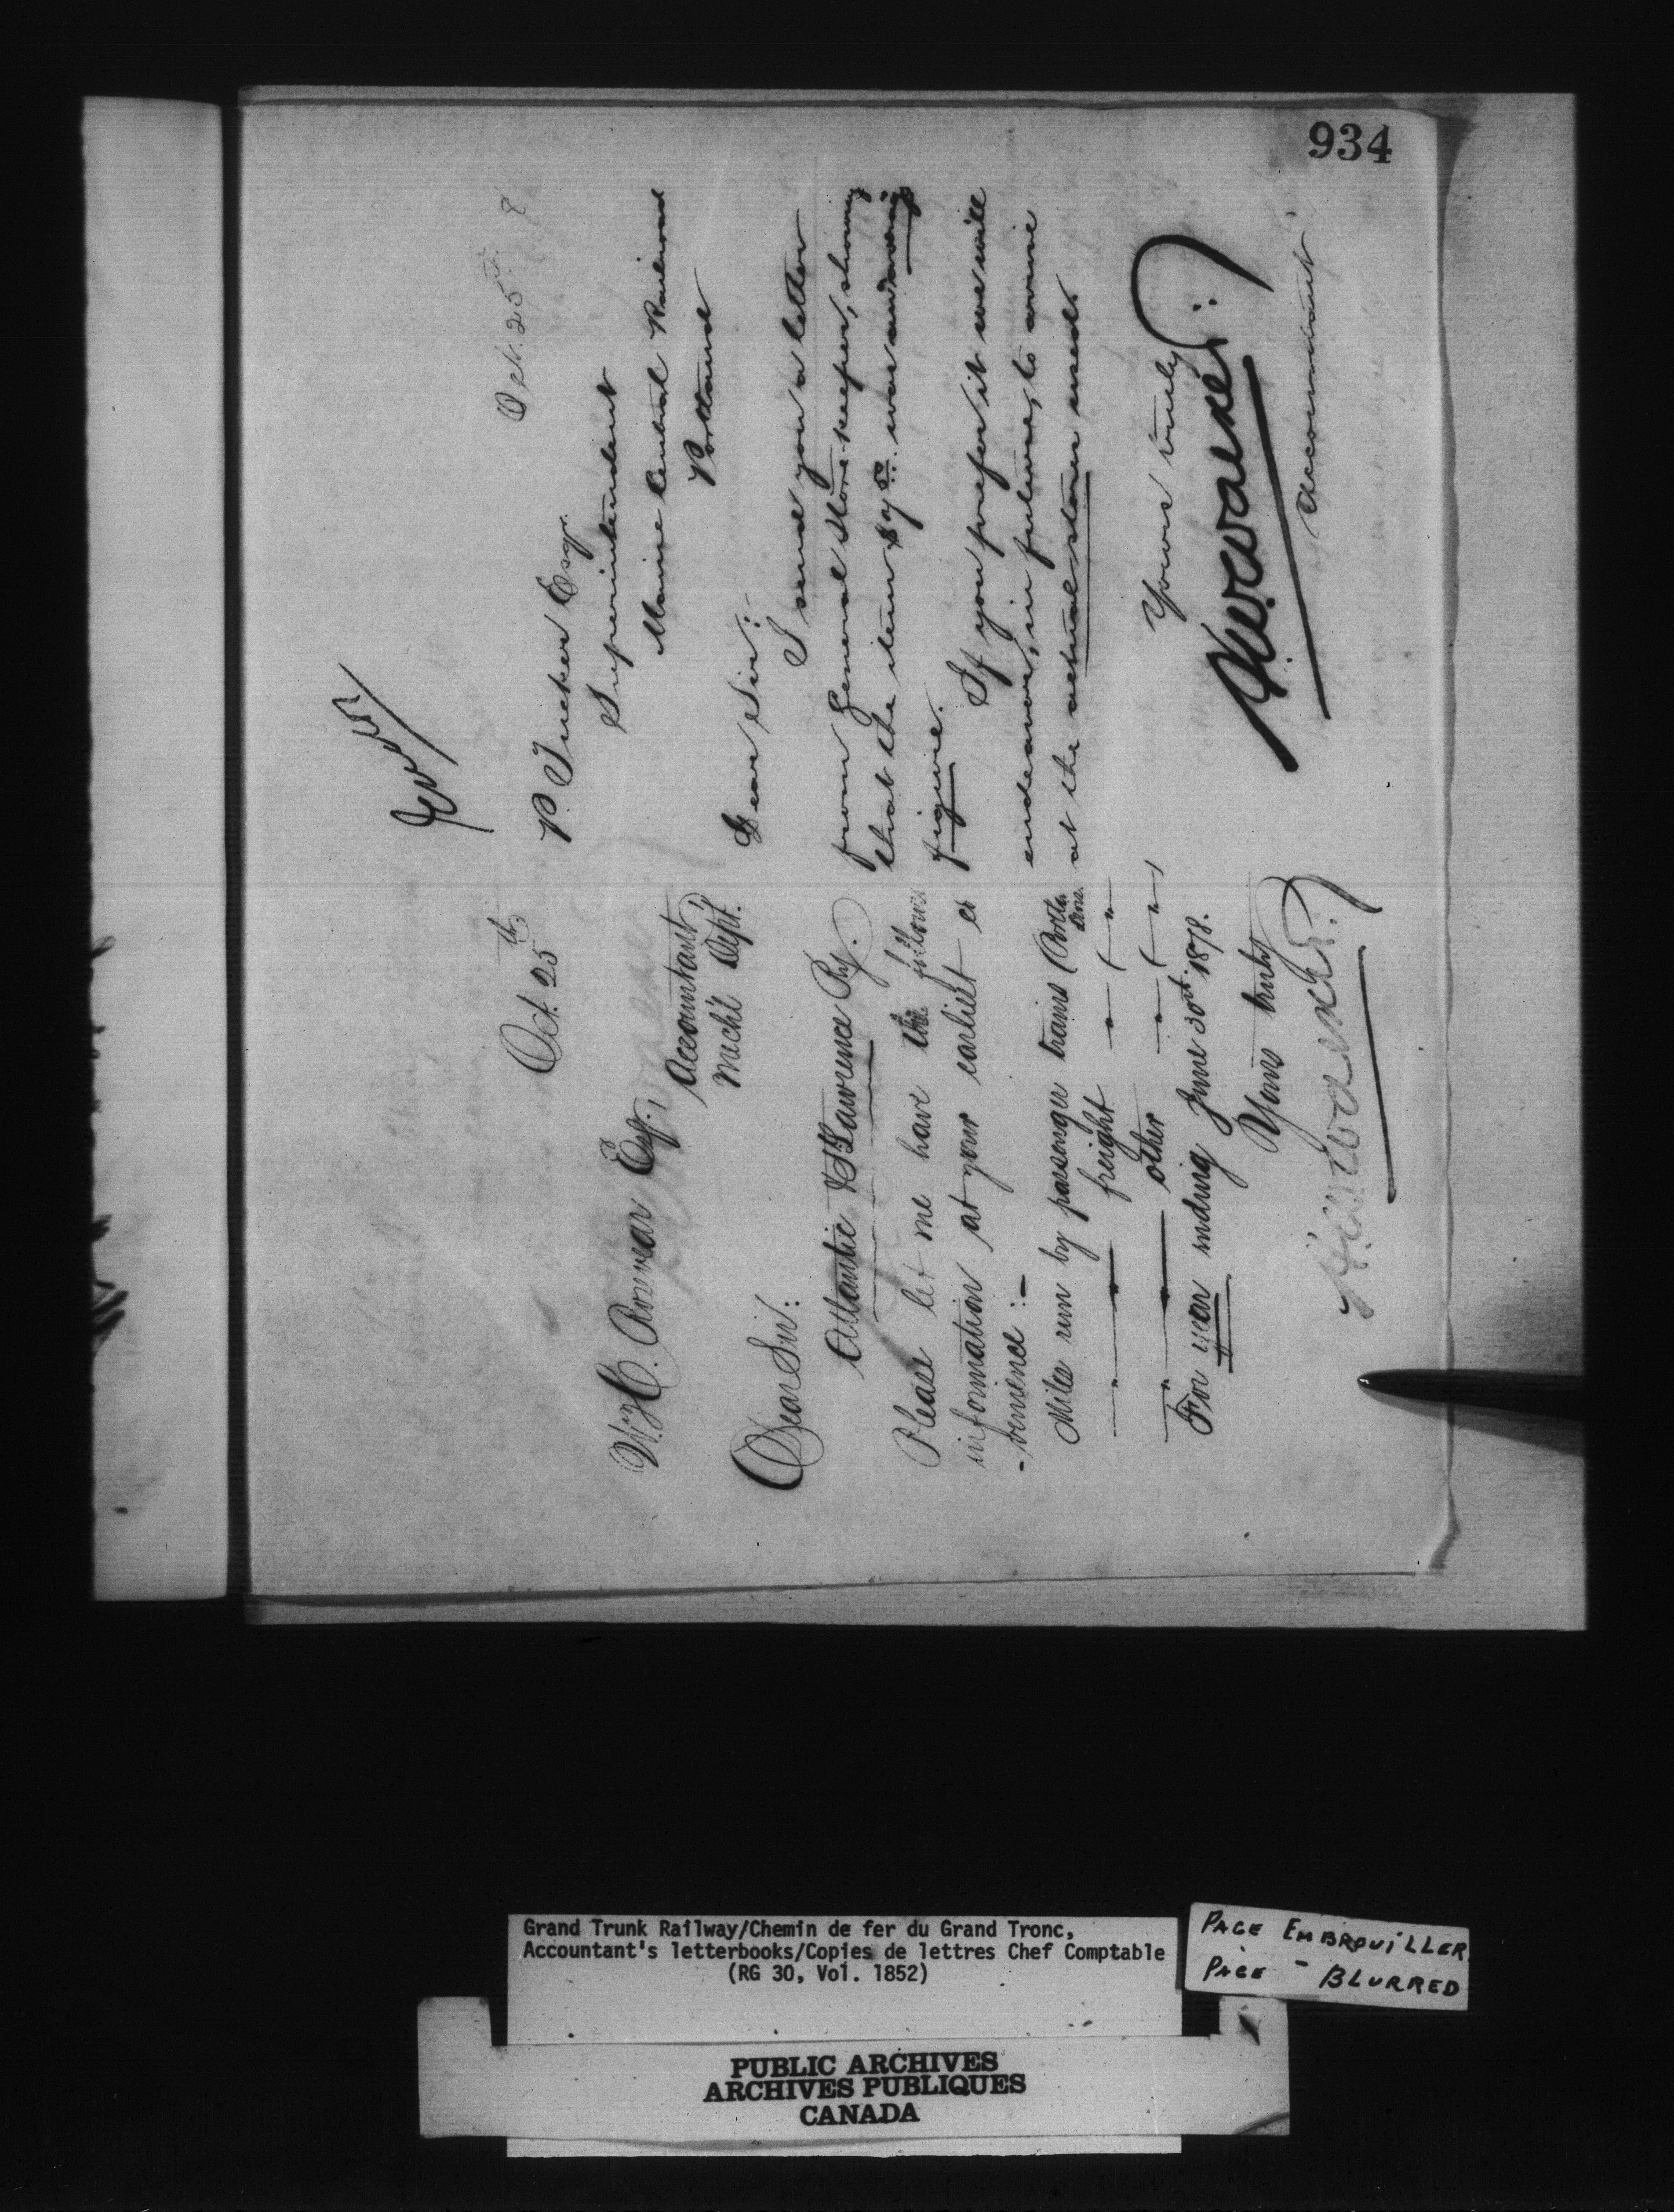 934
Oct. 25th
W. H. Rosevear Esq.,
Accountant,
Mech'l Dept.
Dear Sir:
Atlantic & St Lawrence Ry.
Please let me have the follow
information at your earliest
-venience :-
Miles run by passenger trains (Portn
Divn.
— " — " — freight — " — ( — " —
— " — " — other — " — ( — " — )
For year ending June 30th 1878.
Yours truly
Oct. 25th
P. Tucker Esqr.
Superintendent
Maine Central Railroad
Portland
Dear Sir:
I send you a letter
from General Store-keeper, showing
that the item was an
figure.
If you prefer it we will
endeavor, in future, to arrive
at the actual stores used.
Yours truly
Accountant
Grand Trunk Railway/Chemin de fer du Grand Tronc,
Accountant's letterbooks/Copies de lettres Chef Comptable
(RG 30, Vol. 1852)
PAGE EMBROUILLER
PAGE - BLURRED
PUBLIC ARCHIVES
ARCHIVES PUBLIQUES
CANADA